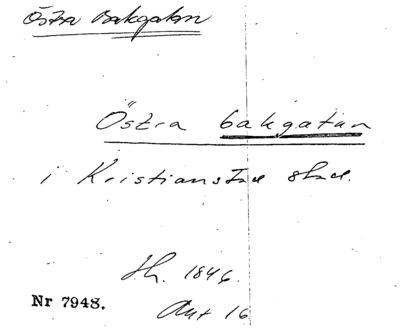 Östra Bakgatan
Östra bakgatan
i Kristianstad stad.
1846.
Nr 7948.
16